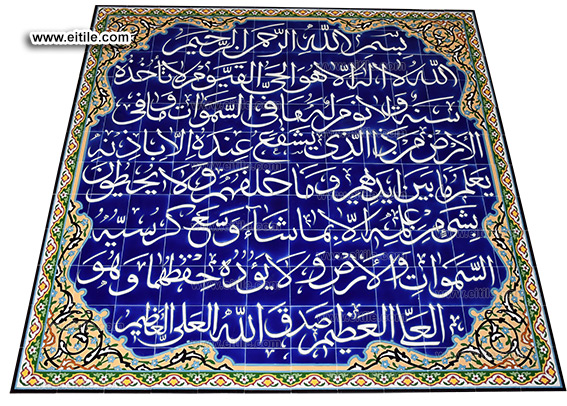 www.eitile.com
بسم الله الرحمن الرحيم
الله لا اله الا هو الحي القيوم لا تاخذه
سنة ولا نوم له ما في السموات وما في
الارض من ذا الذي يشفع عنده الا باذنه
يعلم ما بين ايديهم وما خلفهم ولا يحيطون
بشيء من علمه الا بما شاء وسع كرسيه
السموات والارض ولا يؤده حفظهما وهو
العلي العظيم صدق الله العلي العظيم